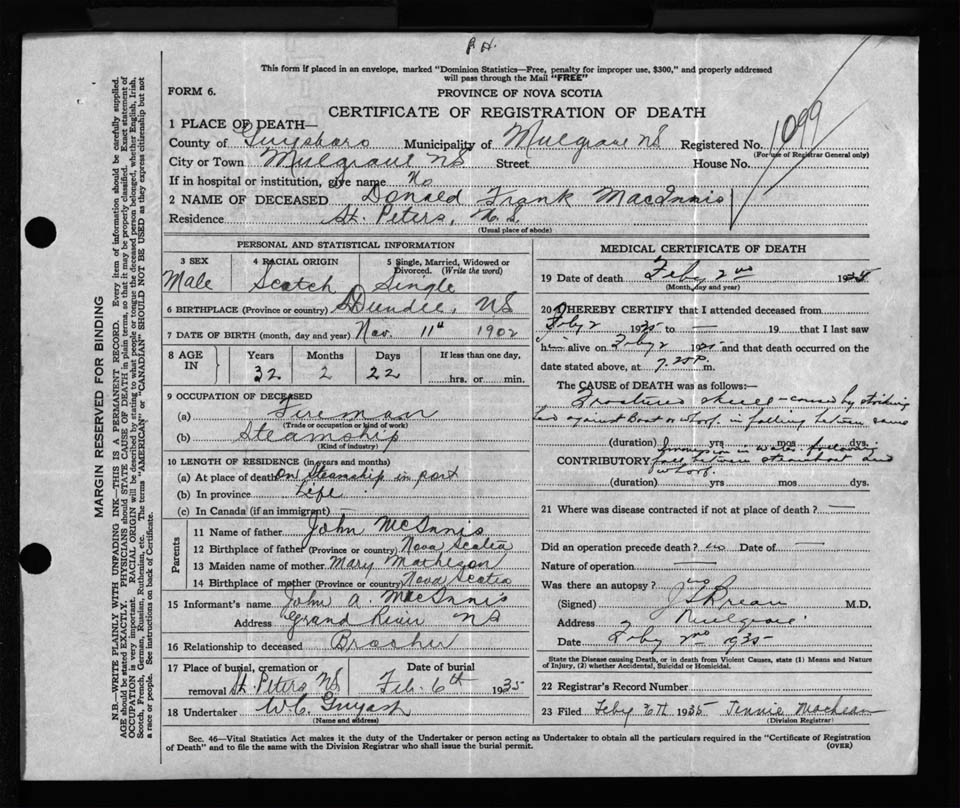 P.H.
This form if placed in an envelope, marked "Dominion Statistics—Free, penalty for improper use, $300," and properly addressed
will pass through the Mail "FREE"
FORM 6.
PROVINCE OF NOVA SCOTIA
CERTIFICATE OF REGISTRATION OF DEATH
1 PLACE OF DEATH—
County of Guysboro Municipality of Mulgrave NS Registered No. 1099
(For use of Registrar General only)
City or Town Mulgrave NS Street House No.
If in hospital or institution, give name No
2 NAME OF DECEASED Donald Frank MacInnis
Residence St. Peters, N.S.
(Usual place of abode)
PERSONAL AND STATISTICAL INFORMATION
3 SEX
Male
4 RACIAL ORIGIN
Scotch
5 Single, Married, Widowed or
Divorced. (Write the word)
Single
6 BIRTHPLACE (Province or country) Dundee, NS
7 DATE OF BIRTH (month, day and year) Nov. 11th 1902
8 AGE IN
Years Months Days If less than one day,
32 2 22 hrs. or min.
9 OCCUPATION OF DECEASED
(a) Fireman
(Trade or occupation or kind of work)
(b) Steamship
(Kind of industry)
10 LENGTH OF RESIDENCE (in years and months)
(a) At place of death on steamship in port
(b) In province Life
(c) In Canada (if an immigrant) —
Parents
11 Name of father John McInnis
12 Birthplace of father (Province or country) Nova Scotia
13 Maiden name of mother Mary Matheson
14 Birthplace of mother (Province or country) Nova Scotia
15 Informant's name John A. MacInnis
Address Grand River NS
16 Relationship to deceased Brother
17 Place of burial, cremation or Date of burial
removal St. Peters NS Feb. 6th 1935
18 Undertaker W.C.
(Name and address)
MEDICAL CERTIFICATE OF DEATH
19 Date of death Feby 2nd 1935
(Month, day and year)
20 I HEREBY CERTIFY that I attended deceased from
Feby 2 1935 to — 19 that I last saw
him alive on Feby 2 1935 and that death occurred on the
date stated above, at 7.25 P. m.
The CAUSE OF DEATH was as follows:—
Fractured skull - caused by striking
head against Boat or wharf in falling between same
(duration) yrs mos dys.
Immersion in water following
CONTRIBUTORY fall between steamboat and
wharf.
(duration) yrs mos dys.
21 Where was disease contracted if not at place of death? —
Did an operation precede death? no Date of —
Nature of operation —
Was there an autopsy? no
(Signed) M.D.
Address Mulgrave
Date Feby 2nd 1935
State the Disease causing Death, or in death from Violent Causes, state (1) Means and Nature
of Injury, (2) whether Accidental, Suicidal or Homicidal.
22 Registrar's Record Number
23 Filed Feby 6th 1935 Jennie
(Division Registrar)
Sec. 46—Vital Statistics Act makes it the duty of the Undertaker or person acting as Undertaker to obtain all the particulars required in the "Certificate of Registration
of Death" and to file the same with the Division Registrar who shall issue the burial permit. (OVER)
MARGIN RESERVED FOR BINDING
N.B.—WRITE PLAINLY WITH UNFADING INK—THIS IS A PERMANENT RECORD. Every item of information should be carefully supplied.
AGE should be stated EXACTLY. PHYSICIANS should STATE CAUSE OF DEATH in plain terms, so that it may be properly classified. Exact statement of
OCCUPATION is very important. RACIAL ORIGIN will be described by stating to what people or tongue the deceased person belonged, whether English, Irish,
Scotch, French, German, Russian, Ruthenian, etc. The terms "AMERICAN" or "CANADIAN" SHOULD NOT BE USED as they express citizenship but not
a race or people. See instructions on back of Certificate.